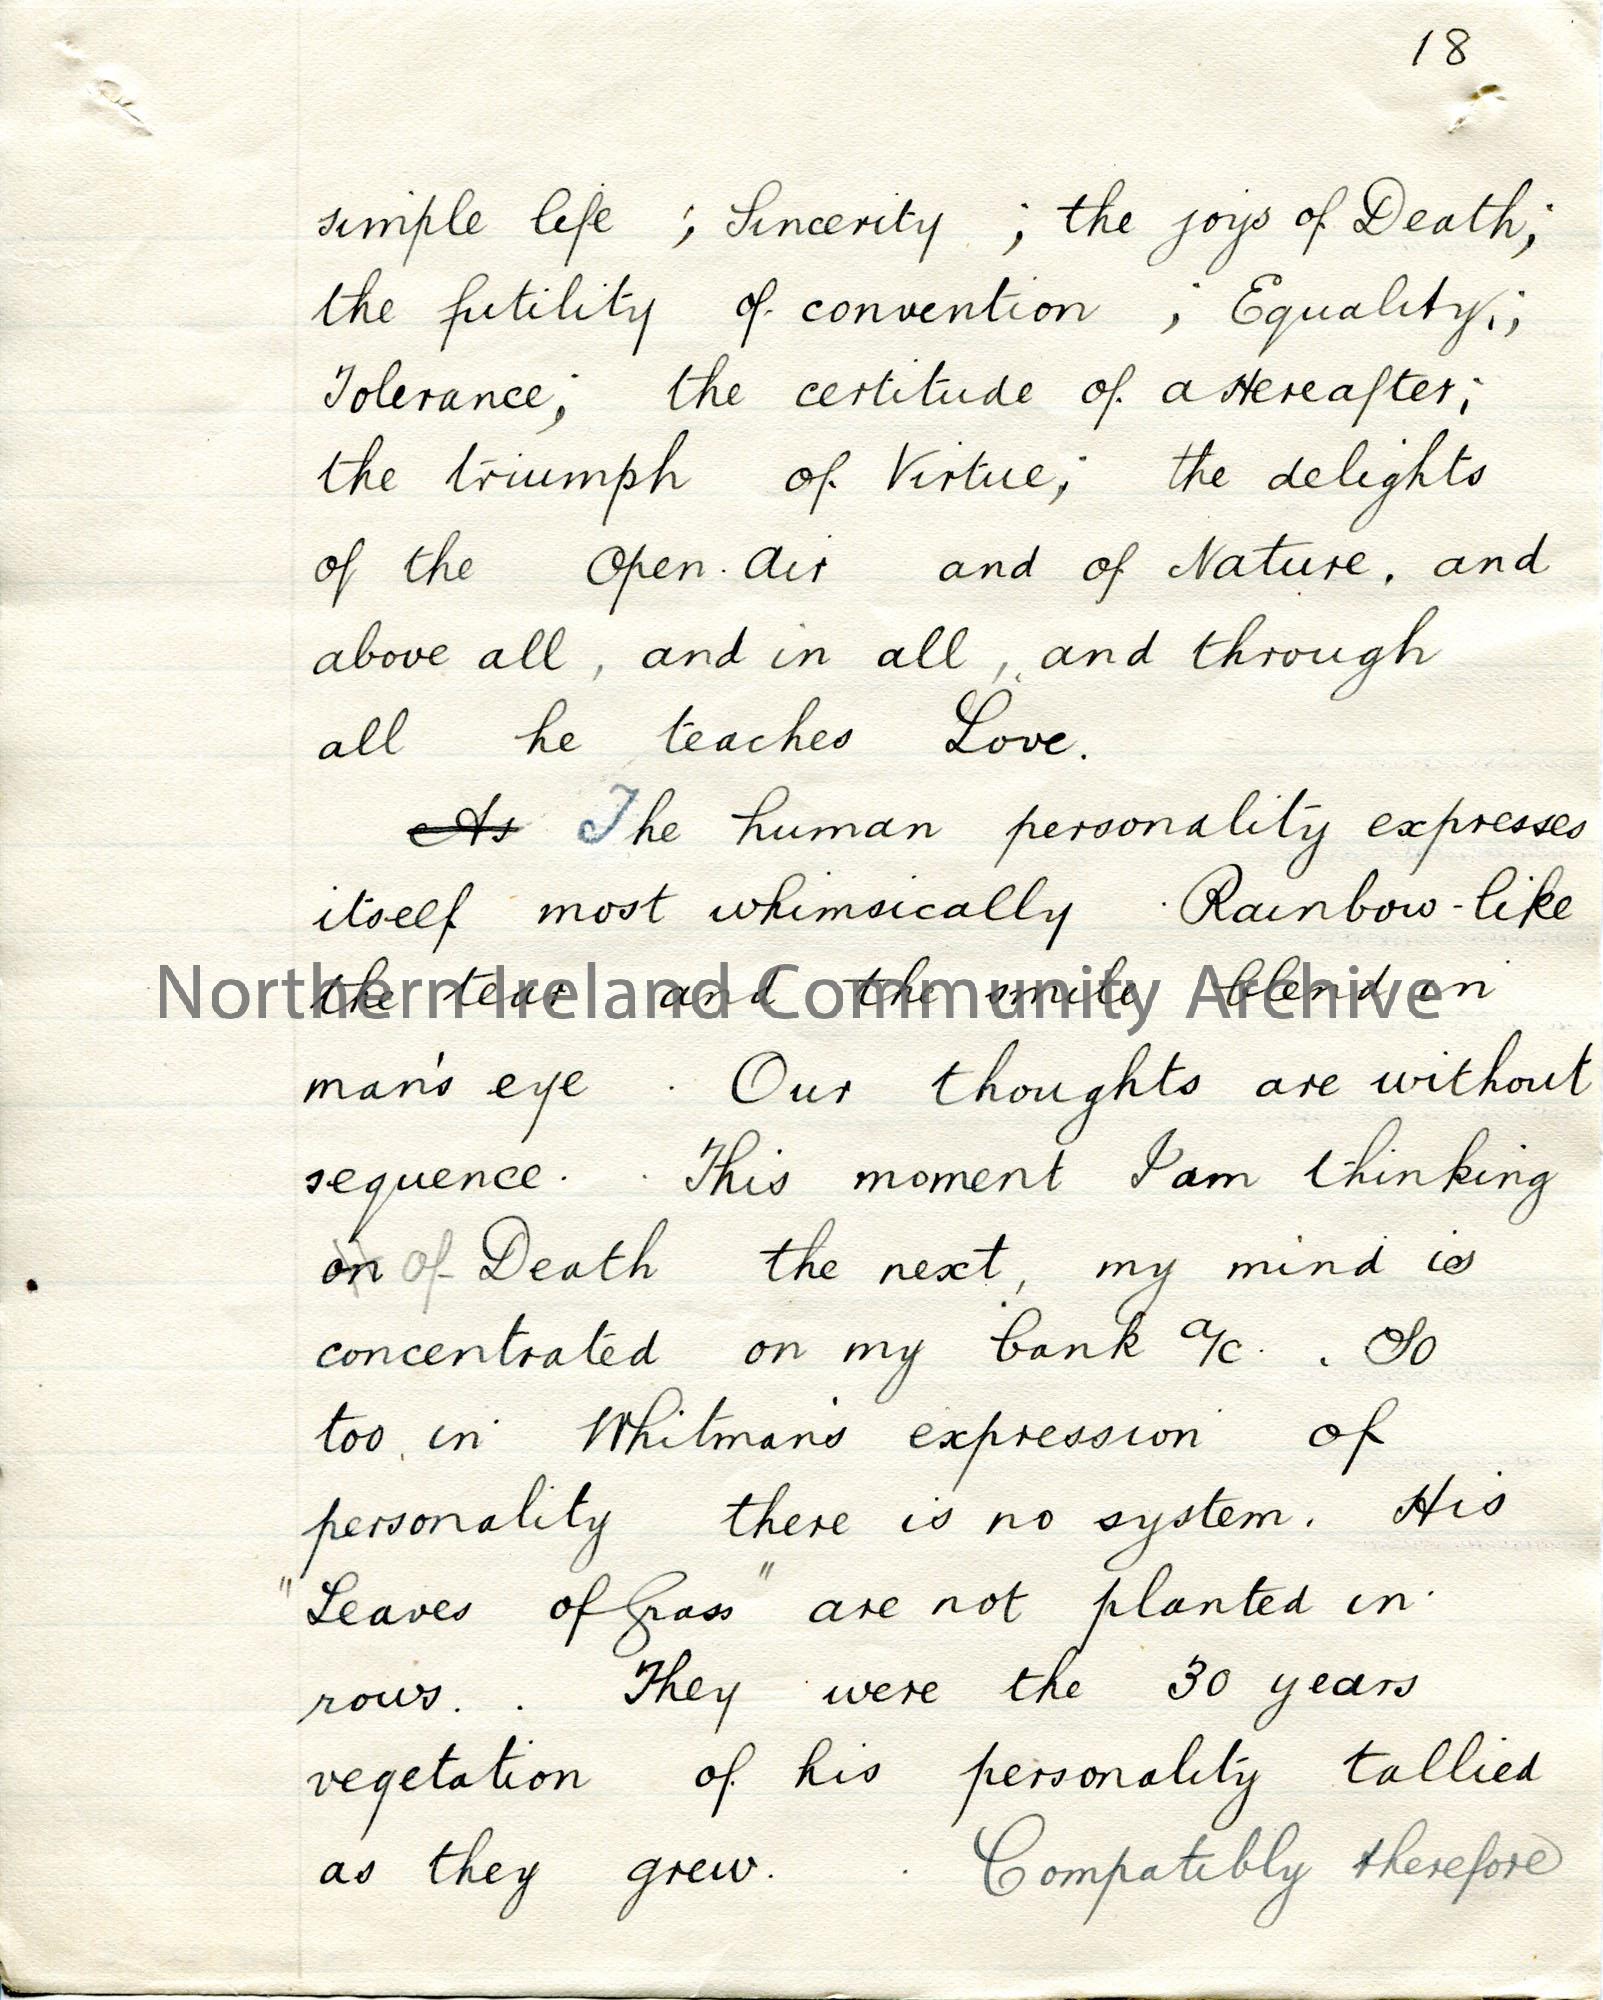 18
simple life ; Sincerity ; the joys of Death;
the futility of convention ; Equality;
Tolerance; the certitude of a Hereafter;
the triumph of Virtue; the delights
of the Open Air and of Nature, and
above all, and in all, and through
all he teaches Love.
As The human personality expresses
itself most whimsically Rainbow-like
the tear and the smile blend in
Northern Ireland Community Archive
man's eye . Our thoughts are without
sequence. This moment I am thinking
on of Death the next, my mind is
concentrated on my bank a/c. So
too in Whitman's expression of
personality there is no system. His
"Leaves of Grass" are not planted in
rows. They were the 30 years
vegetation of his personality tallied
as they grew. Compatibly therefore